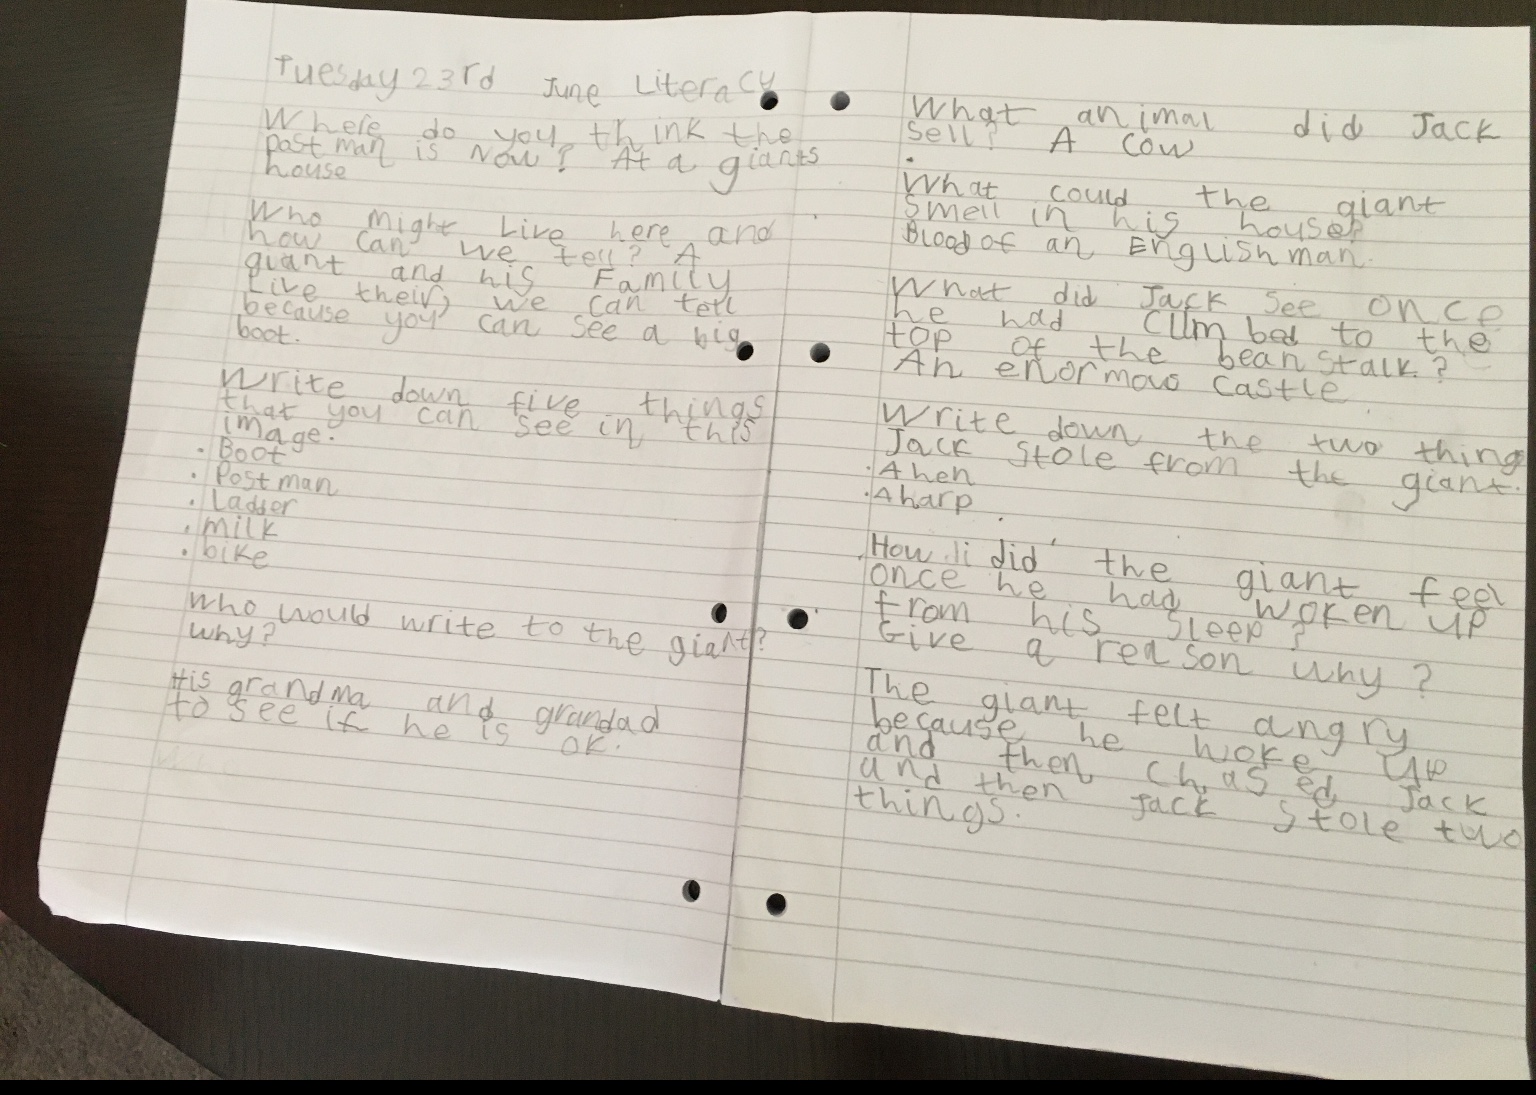 Tuesday 23rd June Literacy
Where do you think the
postman is now? At a giants
house
Who might Live here and
how can we tell? A
giant and his Family
Live their, we can tell
because you can see a big
boot.
Write down five things
that you can see in this
image.
• Boot
• Postman
• Ladder
• milk
• bike
Who would write to the giant?
why?
His grandma and grandad
to see if he is ok.
What animal did Jack
sell? A cow
What could the giant
smell in his house?
Blood of an Englishman.
What did Jack see once
he had climbed to the
top of the beanstalk?
An enormous castle
Write down the two thing
Jack stole from the giant.
• A hen
• A harp
How did the giant feel
once he had woken up
from his sleep?
Give a reason why?
The giant felt angry
because he woke up
and then chased Jack
and then Jack stole two
things.